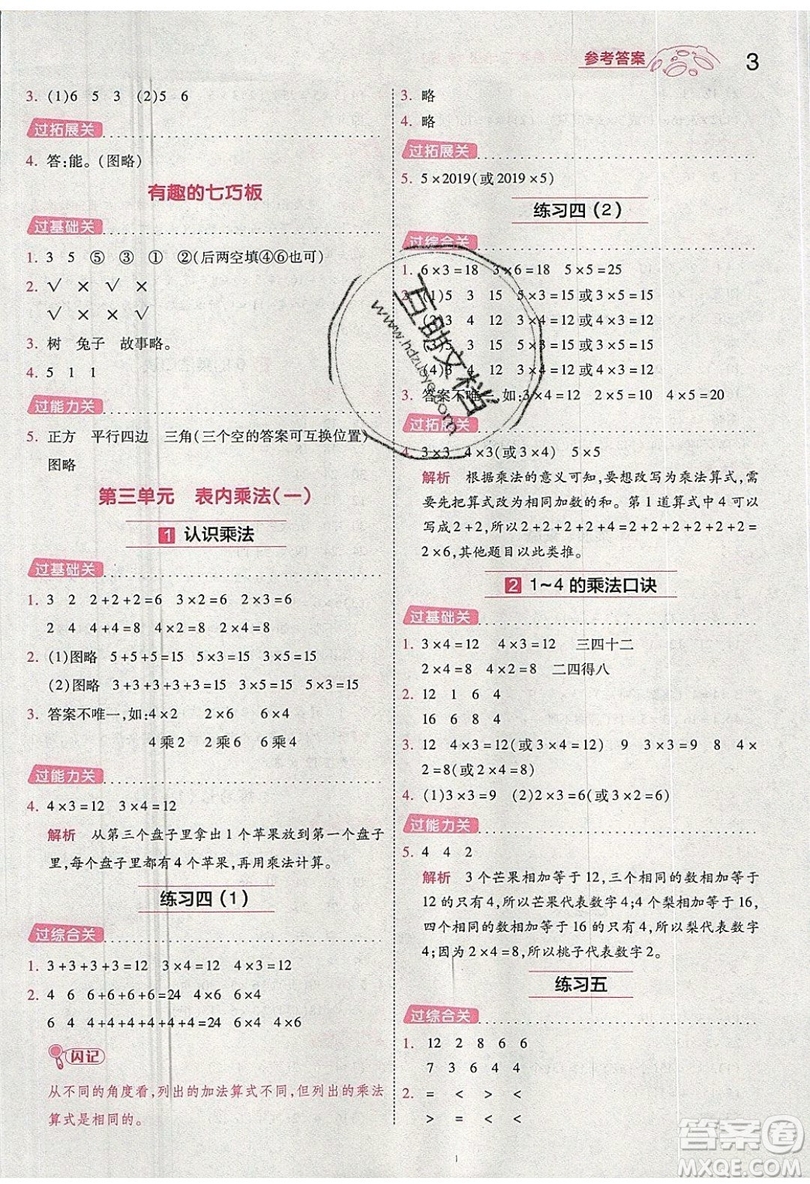 参考答案 3
3. (1)6 5 3 (2)5 6
过拓展关
4. 答:能。(图略)
有趣的七巧板
过基础关
1. 3 5 ⑤ ③ ① ②(后两空填④⑥也可)
2. √ × √ ×
√ √ × ×
3. 树 兔子 故事略。
4. 5 1 1
过能力关
5. 正方 平行四边 三角(三个空的答案可互换位置)
图略
第三单元 表内乘法(一)
1 认识乘法
过基础关
1. 3 2 2+2+2=6 3×2=6 2×3=6
2 4 4+4=8 2×4=8 4×2=8
2. (1)图略 5+5+5=15 5×3=15 3×5=15
(2)图略 3+3+3+3+3=15 3×5=15 5×3=15
3. 答案不唯一,如:4×2 2×6 6×4
4乘2 2乘6 6乘4
过能力关
4. 4×3=12 3×4=12
解析 从第三个盘子里拿出1个苹果放到第一个盘子
里,每个盘子里都有4个苹果,再用乘法计算。
练习四(1)
过综合关
1. 3+3+3+3=12 3×4=12 4×3=12
2. 4 6 6+6+6+6=24 4×6=24 6×4=24
6 4 4+4+4+4+4+4=24 4×6=24 6×4=24
闪记
从不同的角度看,列出的加法算式不同,但列出的乘法
算式是相同的。
3. 略
4. 略
过拓展关
5. 5×2019(或2019×5)
练习四(2)
过综合关
1. 6×3=18 3×6=18 5×5=25
2. (1)5 3 15 5×3=15或3×5=15
3 4 12 3×4=12或4×3=12
5×3=15或3×5=15
(4)3 4 12 3×4=12或4×3=12
3. 答案不唯一,如:3×4=12 2×5=10 4×5=20
过拓展关
4. 3×3 4×3(或3×4) 5×5
解析 根据乘法的意义可知,要想改写为乘法算式,需
要先把算式改为相同加数的和。第1道算式中4可以
写成2+2,所以2+2+2+2+4=2+2+2+2+2+2=
2×6,其他题目以此类推。
2 1~4的乘法口诀
过基础关
1. 3×4=12 4×3=12 三四十二
2×4=8 4×2=8 二四得八
2. 12 1 6 4
16 6 8 4
3. 12 4×3=12(或3×4=12) 9 3×3=9
4. (1)3×3=9 (2)2×3=6(或3×2=6)
过能力关
5. 4 4 2
解析 3个芒果相加等于12,三个相同的数相加等于
12的只有4+4+4=12,所以芒果代表数字4;4个梨,
四个相同的数相加等于16的只有4,所以梨代表数字
4;因为2×4=8,所以桃子代表数字2。
练习五
过综合关
1. 3 12 2 8 6 6
7 3 6 4 4
2. = < > <
> = < <
1
互助文档
www.hdzuoye.com
答案圈
MXQE.COM